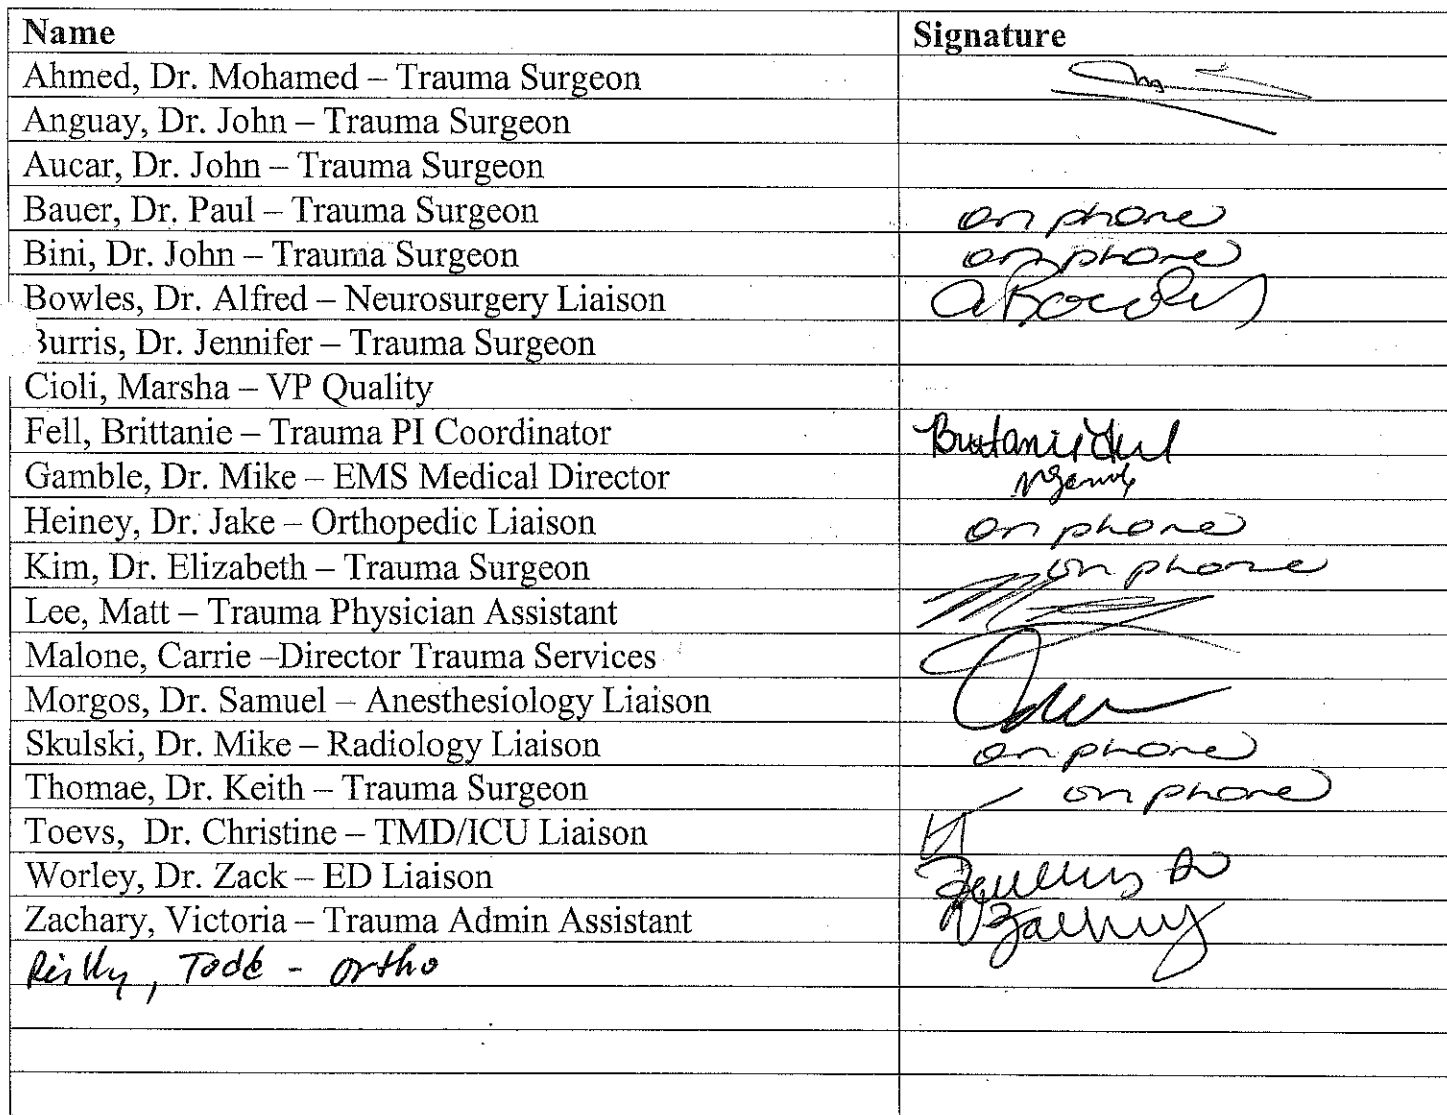 Name Signature
Ahmed, Dr. Mohamed – Trauma Surgeon
Anguay, Dr. John – Trauma Surgeon
Aucar, Dr. John – Trauma Surgeon
Bauer, Dr. Paul – Trauma Surgeon on phone
Bini, Dr. John – Trauma Surgeon on phone
Bowles, Dr. Alfred – Neurosurgery Liaison
urris, Dr. Jennifer – Trauma Surgeon
Cioli, Marsha – VP Quality
Fell, Brittanie – Trauma PI Coordinator
Gamble, Dr. Mike – EMS Medical Director
Heiney, Dr. Jake – Orthopedic Liaison on phone
Kim, Dr. Elizabeth – Trauma Surgeon on phone
Lee, Matt – Trauma Physician Assistant
Malone, Carrie –Director Trauma Services
Morgos, Dr. Samuel – Anesthesiology Liaison
Skulski, Dr. Mike – Radiology Liaison on phone
Thomae, Dr. Keith – Trauma Surgeon on phone
Toevs, Dr. Christine – TMD/ICU Liaison
Worley, Dr. Zack – ED Liaison
Zachary, Victoria – Trauma Admin Assistant VZachary
Todd - ortho